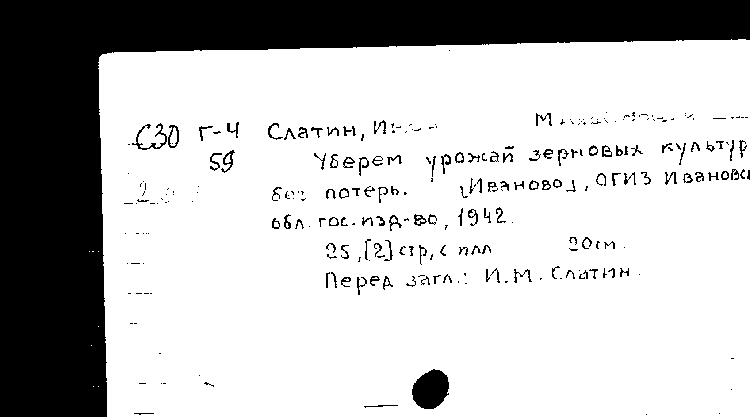 С30 Г-4 Слатин,
59 Уберем урожай зерновых культур
без потерь. [Иваново], ОГИЗ Ивановск
обл. гос. изд-во, 1942.
25, [2] стр, с илл 20см.
Перед загл.: И.М. Слатин.